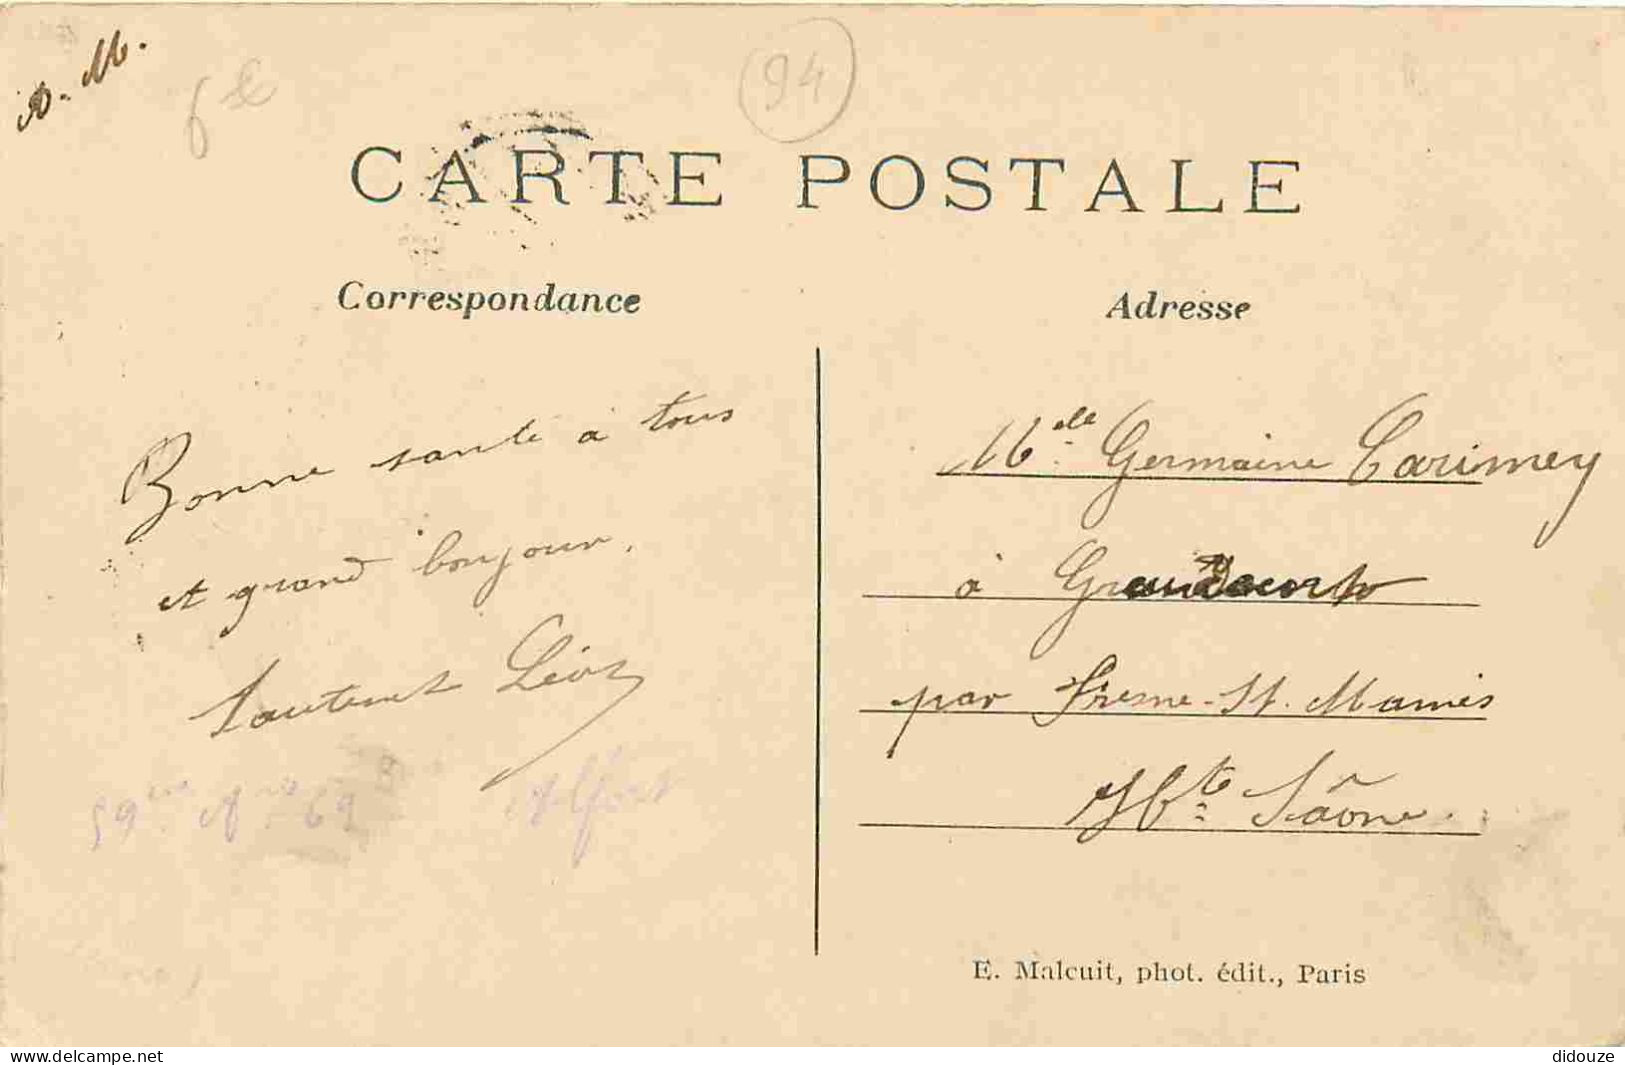 A. M.
94
CARTE POSTALE
Correspondance
Adresse
Bonne santé à tous
et grand bonjour.
Léon
Alfort
Melle Germaine Carimey
à Grandecourt
par Fresne-St. Mamès
Hte Saône.
E. Malcuit, phot. édit., Paris
www.delcampe.net
didouze